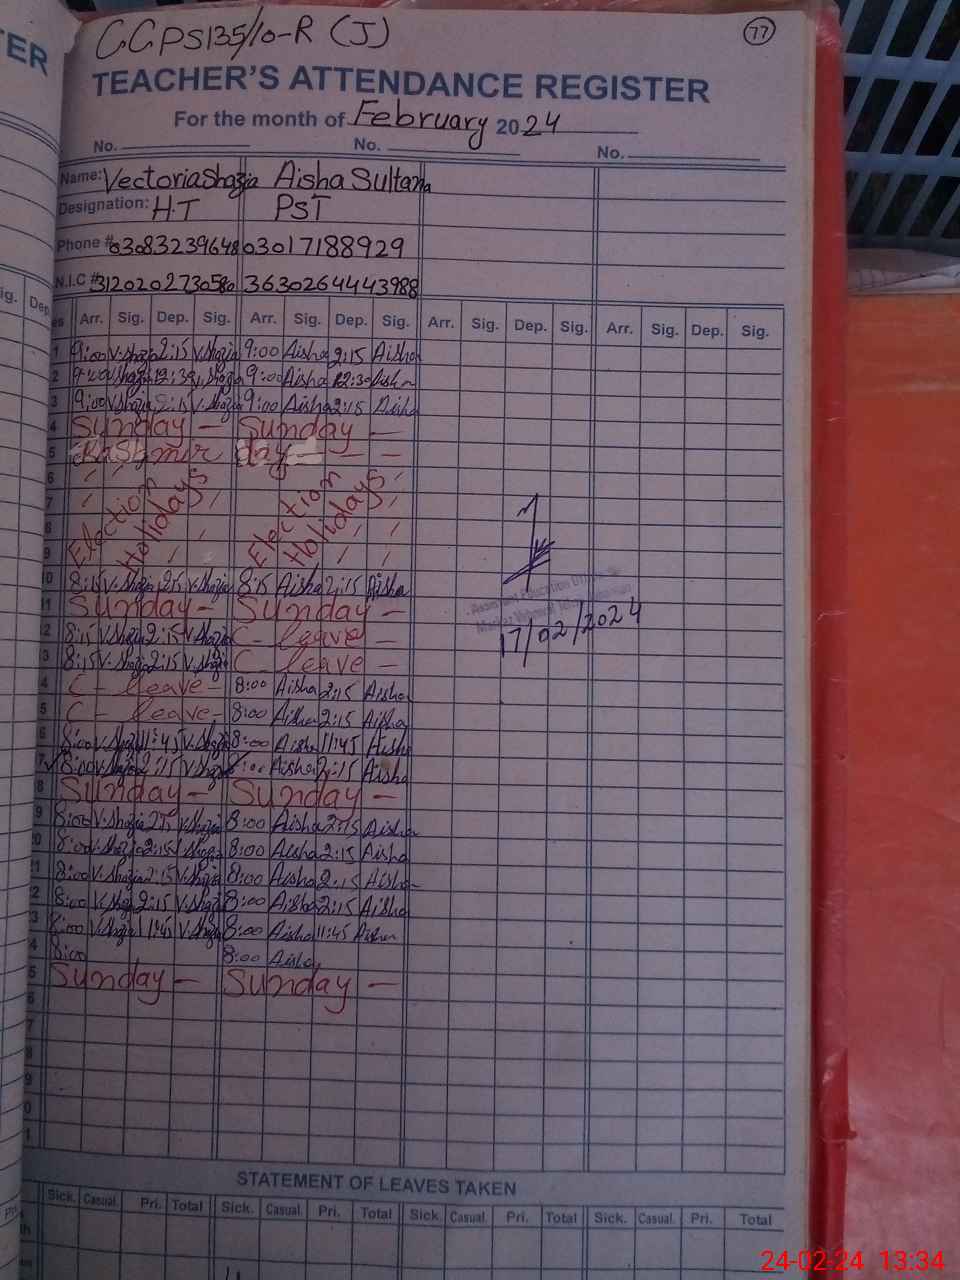 GGPS135/10-R (J)
77
TEACHER'S ATTENDANCE REGISTER
For the month of February 2024
No. No. No.
Name: Vectoria Shazia Aisha Sultana
Designation: H.T PST
Phone # 03083239648 03017188929
N.I.C # 3120202730580 3630264443988
Arr. Sig. Dep. Sig. Arr. Sig. Dep. Sig. Arr. Sig. Dep. Sig. Arr. Sig. Dep. Sig.
1 9:00 V.Shazia 2:15 V.Shazia 9:00 Aisha 2:15 Aisha
2 9:00 V.Shazia 12:30 V.Shazia 9:00 Aisha 12:30 Aisha
3 9:00 V.Shazia 2:15 V.Shazia 9:00 Aisha 2:15 Aisha
4 Sunday — Sunday —
5 Kashmir day — — —
6
7 Election Holidays Election Holidays
8
9
10 8:15 V.Shazia 2:15 V.Shazia 8:15 Aisha 2:15 Aisha
11 Sunday — Sunday —
2 8:15 V.Shazia 2:15 V.Shazia C - leave —
3 8:15 V.Shazia 2:15 V.Shazia C - leave —
4 C - leave — 8:00 Aisha 2:15 Aisha
5 C - leave — 8:00 Aisha 2:15 Aisha
6 8:00 V.Shazia 11:45 V.Shazia 8:00 Aisha 11:45 Aisha
7 8:00 V.Shazia 2:15 V.Shazia 8:00 Aisha 2:15 Aisha
8 Sunday — Sunday —
9 8:00 V.Shazia 2:15 V.Shazia 8:00 Aisha 2:15 Aisha
20 8:00 V.Shazia 2:15 V.Shazia 8:00 Aisha 2:15 Aisha
21 8:00 V.Shazia 2:15 V.Shazia 8:00 Aisha 2:15 Aisha
2 8:00 V.Shazia 2:15 V.Shazia 8:00 Aisha 2:15 Aisha
3 8:00 V.Shazia 11:45 V.Shazia 8:00 Aisha 11:45 Aisha
4 8:00 8:00 Aisha
5 Sunday — Sunday —
6
7
8
9
0
1
Assistant Education Officer
17/02/2024
STATEMENT OF LEAVES TAKEN
Sick. Casual. Pri. Total Sick. Casual. Pri. Total Sick. Casual. Pri. Total Sick. Casual. Pri. Total
24-02-24 13:34